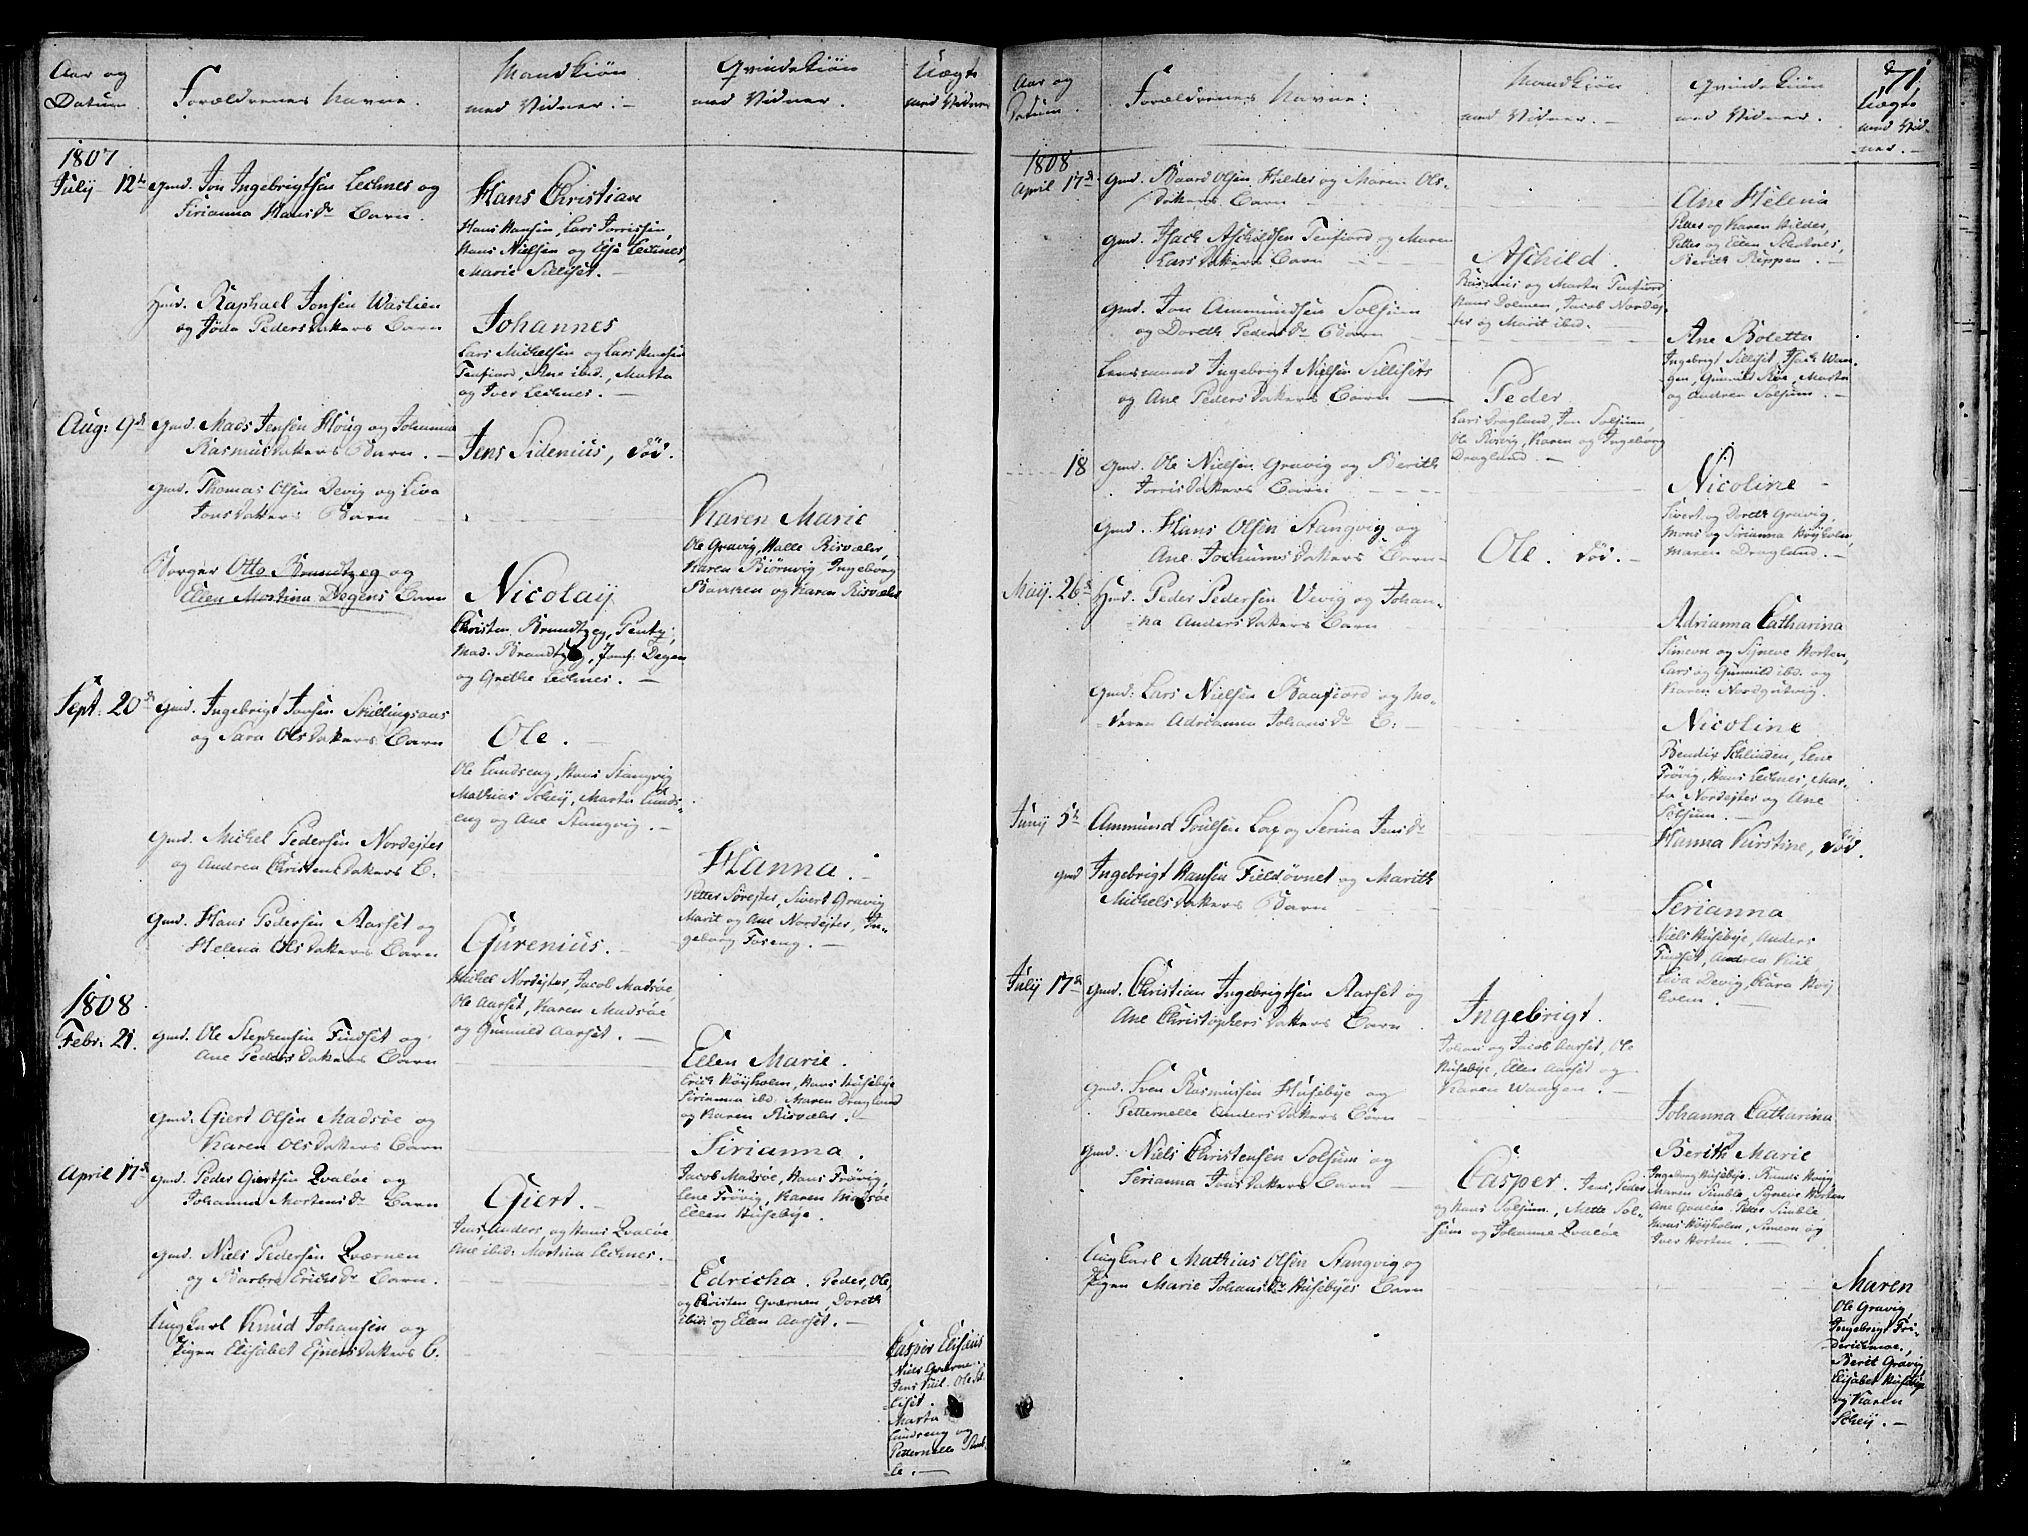 Aar og
Datum
Forældrenes Navne.
Mandkiøn
med Vidner :-
Qvindekiøn
med Vidner.
Uægte
med Vidner
1807
July 12te
Gmd. Jon Ingebrigtsen Lechnes og
Sirianna Hansdr Barn.
Hans Christian
Hans Hansen, Lars Torrissen,
Hans Nielsen og Else Lechnes,
Marie Silliset. -
Hmd. Raphael Jonsen Wastien
og Joda Pedersdatters Barn
Johannes
Lars Michelsen og Lars Hansen
Tenfiord, Ane ibid., Marta
og Iver Lechnes. -
Aug: 9de
Gmd. Mads Jensen Houg og Johanna
Rasmusdatters Barn. -
Jens Sidenius, død.
Gmd. Thomas Olsen Devig og Liva
Jonsdatters Barn
Karen Marie
Ole Gravig, Halle Risvalen,
Karen Biørnvig, Ingeborg
Barmen og Karen Risvalen
Borger Otto Brandtzeg og
Ellen Martina Degens Barn
Nicolay
Christen Brandtzeg, Penty;
Mad. Brandtzeg, Jomf. Degen
og Grethe Lechnes. -
Sept: 20de
Gmd. Ingebrigt Jonsen Skillingsaas
og Sara Olsdatters Barn
Ole. -
Ole Lundseng, Hans Stangvig
Mathias Schey, Marta Lunds-
eng og Ane Stangvig. -
Gmd. Michel Pedersen Nordejtes
og Andrea Christensdatters B.
Hanna. -
Petter Sørejtes, Sivert Gravig
Marit og Ane Nordejtes, In-
geborg Foseng. -
Gmd. Hans Pedersen Aarset og
Helena Olsdatters Barn
Gurenius. -
Michel Nordejtes, Jacob Madsøe,
Ole Aarset, Karen Madsøe
og Gunnild Aarset. -
1808
Febr: 21.
Gmd. Ole Stephensen Findset og
Ane Pedersdatters Barn
Ellen Marie.
Erich Høyholm, Hans Husebye
Sirianna ibd. Maren Dragland
og Karen Risvalen.
Gmd. Giert Olsen Madsøe og
Karen Olsdatters Barn
Sirianna.
Jacob Madsøe, Hans Frøvig,
Lene Frøvig, Karen Madsøe
Ellen Husebye.
April 17de
Gmd. Peder Giertsen Qvaløe og
Johanna Mortensdr Barn
Giert. -
Jens, Anders, og Hans Qvaløe,
Ane ibid: Martina Lechnes.
Gmd. Niels Pedersen Qværnen
og Barbra Erichsdr Barn.
Edricha. Peder, Ole,
og Christen Qværnen, Doreth
ibid: og Elen Aarset. -
Ungkarl Knud Johansen og
Pigen Elisabet Ejnersdatters B.
Casper Elisæus
Niels Qværne.
Jens Kiil. Ole Sil-
liset.
Marta
Lundseng og
Petternelle Simb-
le. -
71
Aar og
Datum.
Forældrenes Navne:
Mandkiøn
med Vidner. -
Qvindekiøn
med Vidner.
Uægte
med Vid-
ner. -
1808
April 17de
Gmd. Baard Olsen Hilder og Maren Ols-
datters Barn
Ane Helena
Petter og Karen Hilder,
Petter og Ellen Skotnes,
Berith Reppen. -
Gmd. Isach Aschildsen Tenfiord og Maren
Larsdatters Barn
Aschild.
Rasmus og Marta Tenfiord,
Hans Dolmen, Jacob Nordej-
tes og Marit ibid.
Gmd. Jon Ammundsen Solsum
og Doreth Pedersdr Barn
Ane Boletta
Ingebrigt Silliset, Isach Waa-
gen, Gunnild Røe, Marta
og Andrea Solsum. -
Lensmand Ingebrigt Nielsen Sillisets
og Ane Pedersdatters Barn
Peder
Lars Dragland, Jon Solsum,
Ole Risvig, Karen og Ingeborg
Dragland. -
18
Gmd. Ole Nielsen Gravig og Berith
Torrisdatters Barn
Nicoline -
Sivert og Doreth Gravig,
Mons og Sirianna Høyholm,
Maren Dragland. -
Gmd. Hans Olsen Stangvig og
Ane Jochumsdatters Barn
Ole. død. -
May. 26de
Hmd. Peder Pedersen Vevig og Johan-
na Andersdatters Barn
Adrianna Catharina
Simeon og Synneve Horten,
Lars og Gunnild ibd. og
Karen Nordgutvig.
Gmd: Lars Nielsen Baafiord og Mo-
deren Adrianna Johansdr B:
Nicoline
Bendix Schlinden, Lene
Frøvig, Hans Lechnes, Mar-
ta Nordejtes og Ane
Solsum. -
Juny 5te
Ammund Poulsen Lox og Serina Jensdr
Hanna Kirstine, død.
Gmd Ingebrigt Hansen Fieldøvnet og Marith
Michelsdatters Barn
Serianna
Niels Husebye, Anders
Findset, Andrea Kiil
Liva Devig, Kara Høy
holm. -
July 17de
Gmd. Christian Ingebrigtsen Aarset og
Ane Christophersdatters Barn
Ingebrigt.
Johan og Jacob Aarset, Ole
Husebye, Ellen Aarset og
Karen Waagen. -
Gmd. Sven Rasmussen Husebye og
Petternelle Andersdatters Børn
Johanna Catharina
og
Berith Marie
Ingeborg Husebye, Trands Høvig
Maren Simble, Synneve Horten
Ane Qvaløe, Petter Simble,
Mons Høyholm, Simeon og
Iver Horten. -
Gmd. Niels Christensen Solsum og
Serianna Jonsdatters Barn
Casper. Jens, Peder
og Hans Solsum, Mette Sol-
sum og Johanna Qvaløe
Ungkarl Mathias Olsen Stangvig og
Pigen Marie Johansdr Husebyes Barn
Maren
Ole Gravig,
Ingebrigt Fri-
derichmoe,
Berit Gravig
Elisabet Husebye
og Karen
Schey. -